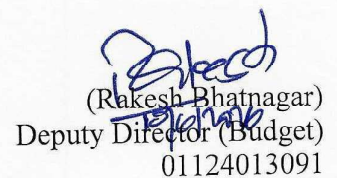 Rakesh
(Rakesh Bhatnagar)
Deputy Director (Budget)
01124013091